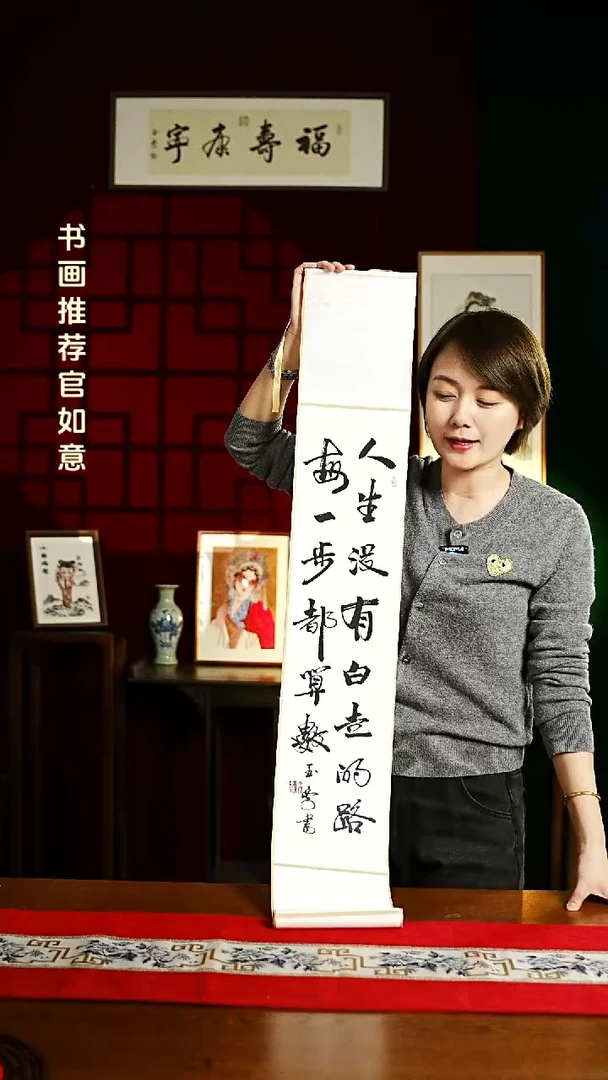 福壽康寧
书画推荐官如意
人生没有白走的路
每一步都算數
玉莺書